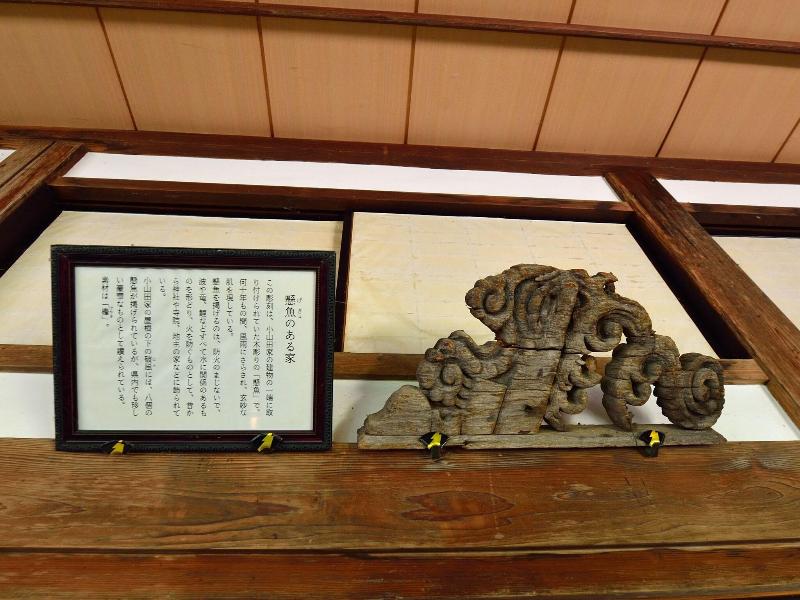 懸魚のある家
げぎょ
この彫刻は、小山田家の建物の一端に取
り付けられていた木彫りの「懸魚」で、
何十年もの間、風雨にさらされ、玄妙な
肌を現している。
懸魚を掲げるのは、防火のまじないで、
波や竜、鯉などすべて水に関係のあるも
のを形どり、火を防ぐものとして、昔か
ら神社や寺院、地主の家などに飾られて
いる。
小山田家の屋根の下の破風には、八個の
懸魚が掲げられているが、県内でも珍し
い豪華なものとして讃えられている。
素材は「欅」。